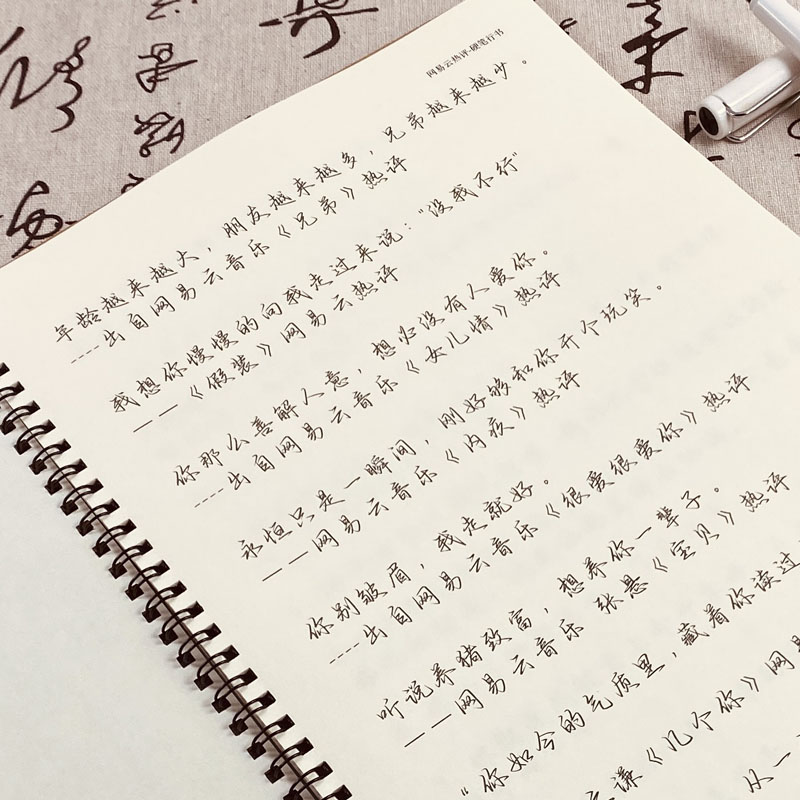 网易云热评-硬笔行书
年龄越来越大，朋友越来越多，兄弟越来越少。
----出自网易云音乐《兄弟》热评
我想你慢慢的向我走过来说："没我不行"
——《假装》网易云热评
你那么善解人意，想必没有人爱你。
----出自网易云音乐《女儿情》热评
永恒只是一瞬间，刚好够和你开个玩笑。
——网易云音乐《内疚》热评
你别皱眉，我走就好。
----出自网易云音乐《很爱很爱你》热评
听说养猪致富，想养你一辈子。
——网易云音乐 张悬《宝贝》热评
"你如今的气质里，藏着你读过
谦《几个你》网易
从一